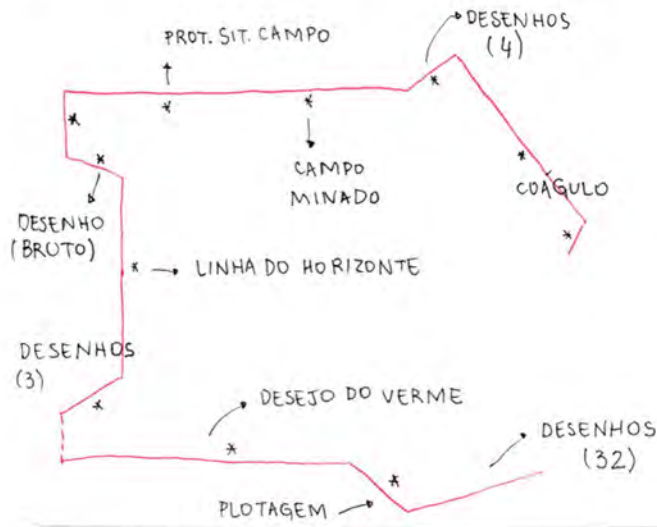 DESENHOS
(4)
PROT. SIT. CAMPO
CAMPO
MINADO
COÁGULO
DESENHO
(BRUTO)
LINHA DO HORIZONTE
DESENHOS
(3)
DESEJO DO VERME
DESENHOS
(32)
PLOTAGEM